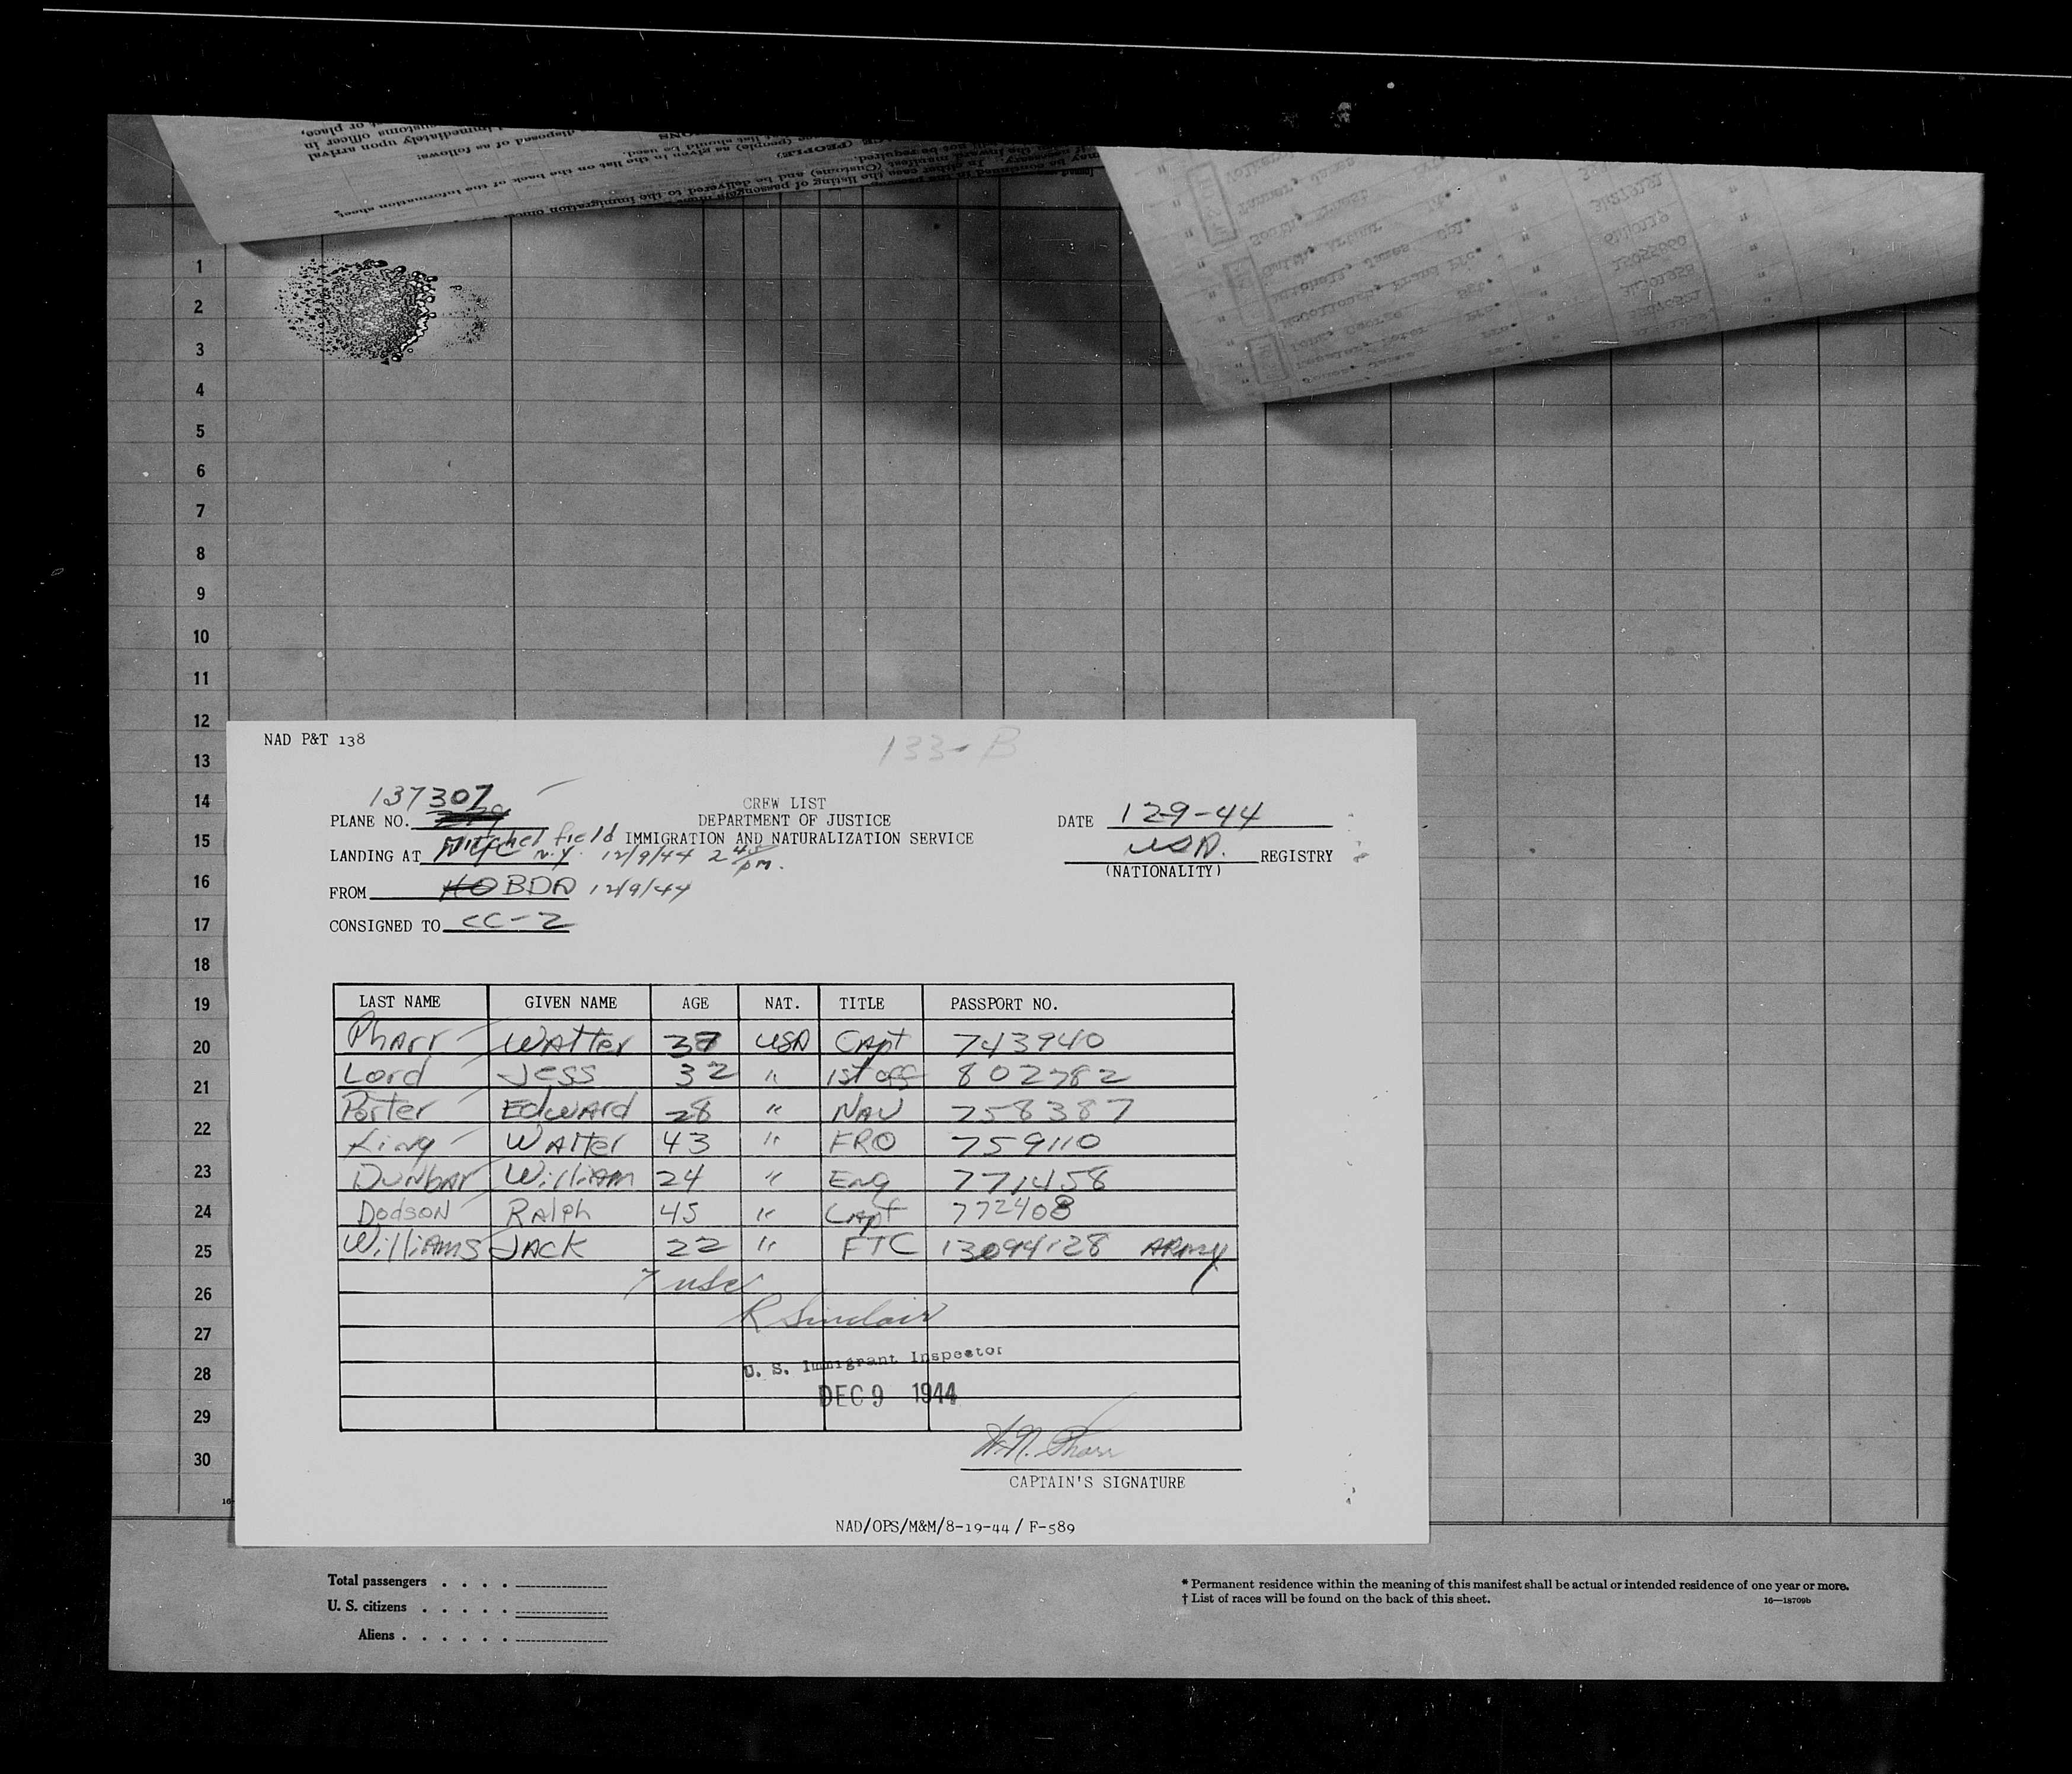 NAD P&T 138
133-B
137307
CREW LIST
PLANE NO.
DEPARTMENT OF JUSTICE
DATE 129-44
Mitchel field
IMMIGRATION AND NATURALIZATION SERVICE
LANDING AT NYC N.Y. 12/9/44 2 45 pm.
USA. REGISTRY
(NATIONALITY)
FROM HO BDA 12/9/44
CONSIGNED TO CC-2
LAST NAME GIVEN NAME AGE NAT. TITLE PASSPORT NO.
Pharr Walter 37 USA Capt 743940
Lord Jess 32 " 1st off 802782
Porter Edward 28 " NAV 758387
King Walter 43 " FRO 759110
Dunbar William 24 " Eng 771458
Dodson Ralph 45 " Capt 772408
Williams Jack 22 " FTC 13094128 ARMY
7 usc
R Sinclair
U. S. Immigrant Inspector
DEC 9 1944
W.N. Pharr
CAPTAIN'S SIGNATURE
NAD/OPS/M&M/8-19-44/ F-589
1
2
3
4
5
6
7
8
9
10
11
12
13
14
15
16
17
18
19
20
21
22
23
24
25
26
27
28
29
30
16-
Total passengers . . . .
U. S. citizens . . . . .
Aliens . . . . . .
* Permanent residence within the meaning of this manifest shall be actual or intended residence of one year or more.
† List of races will be found on the back of this sheet.
16—18709b